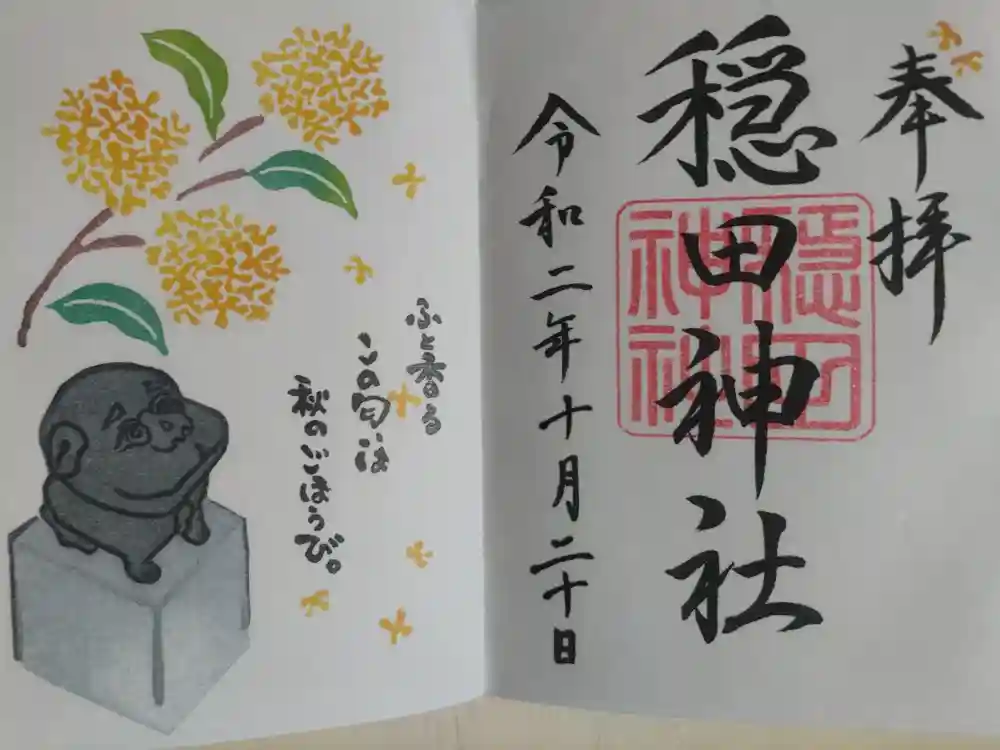 奉拝
穏田神社
穏田神社
令和二年十月二十日
ふと香る
この匂いは
秋のごほうび。